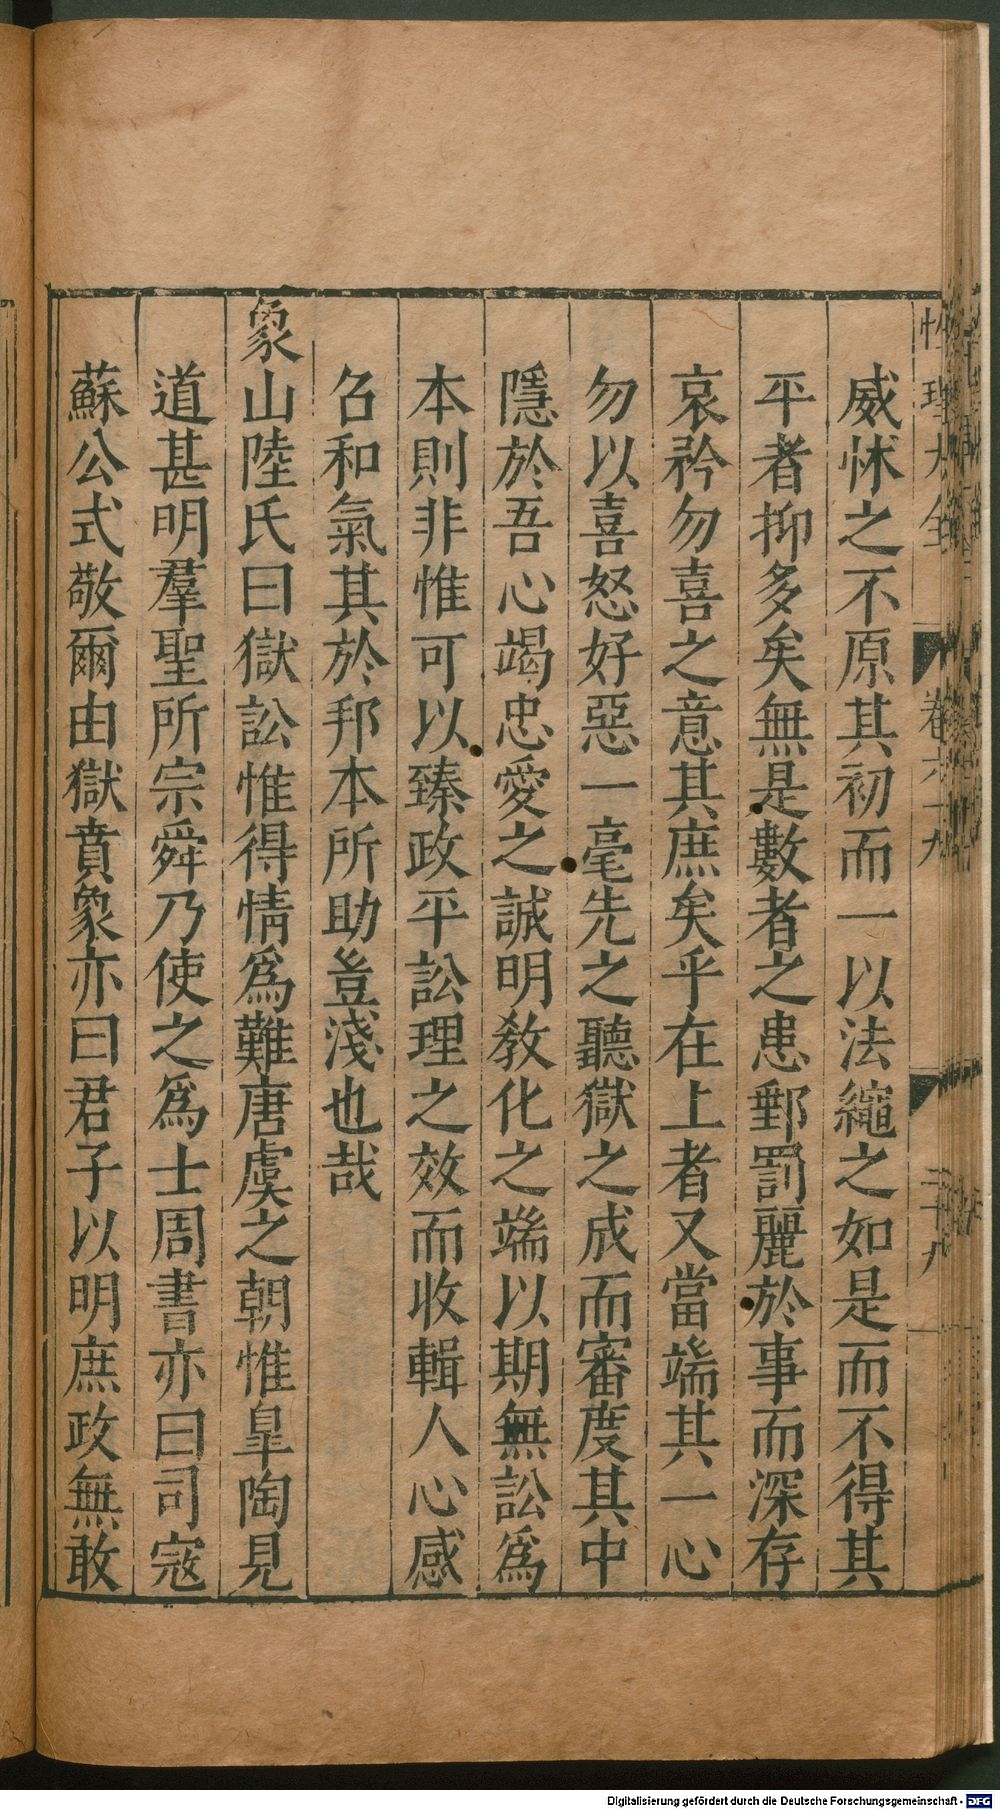 性理大全 卷六十九 二十八
威怵之不原其初而一以法繩之如是而不得其
平者抑多矣無是數者之患郵罰麗於事而深存
哀矜勿喜之意其庶矣乎在上者又當端其一心
勿以喜怒好惡一毫先之聽獄之成而審度其中
隱於吾心竭忠愛之誠明敎化之端以期無訟爲
本則非惟可以臻政平訟理之效而收輯人心感
召和氣其於邦本所助豈淺也哉
象山陸氏曰獄訟惟得情爲難唐虞之朝惟臯陶見
道甚明羣聖所宗舜乃使之爲士周書亦曰司寇
蘇公式敬爾由獄賁象亦曰君子以明庶政無敢
Digitalisierung gefördert durch die Deutsche Forschungsgemeinschaft - DFG